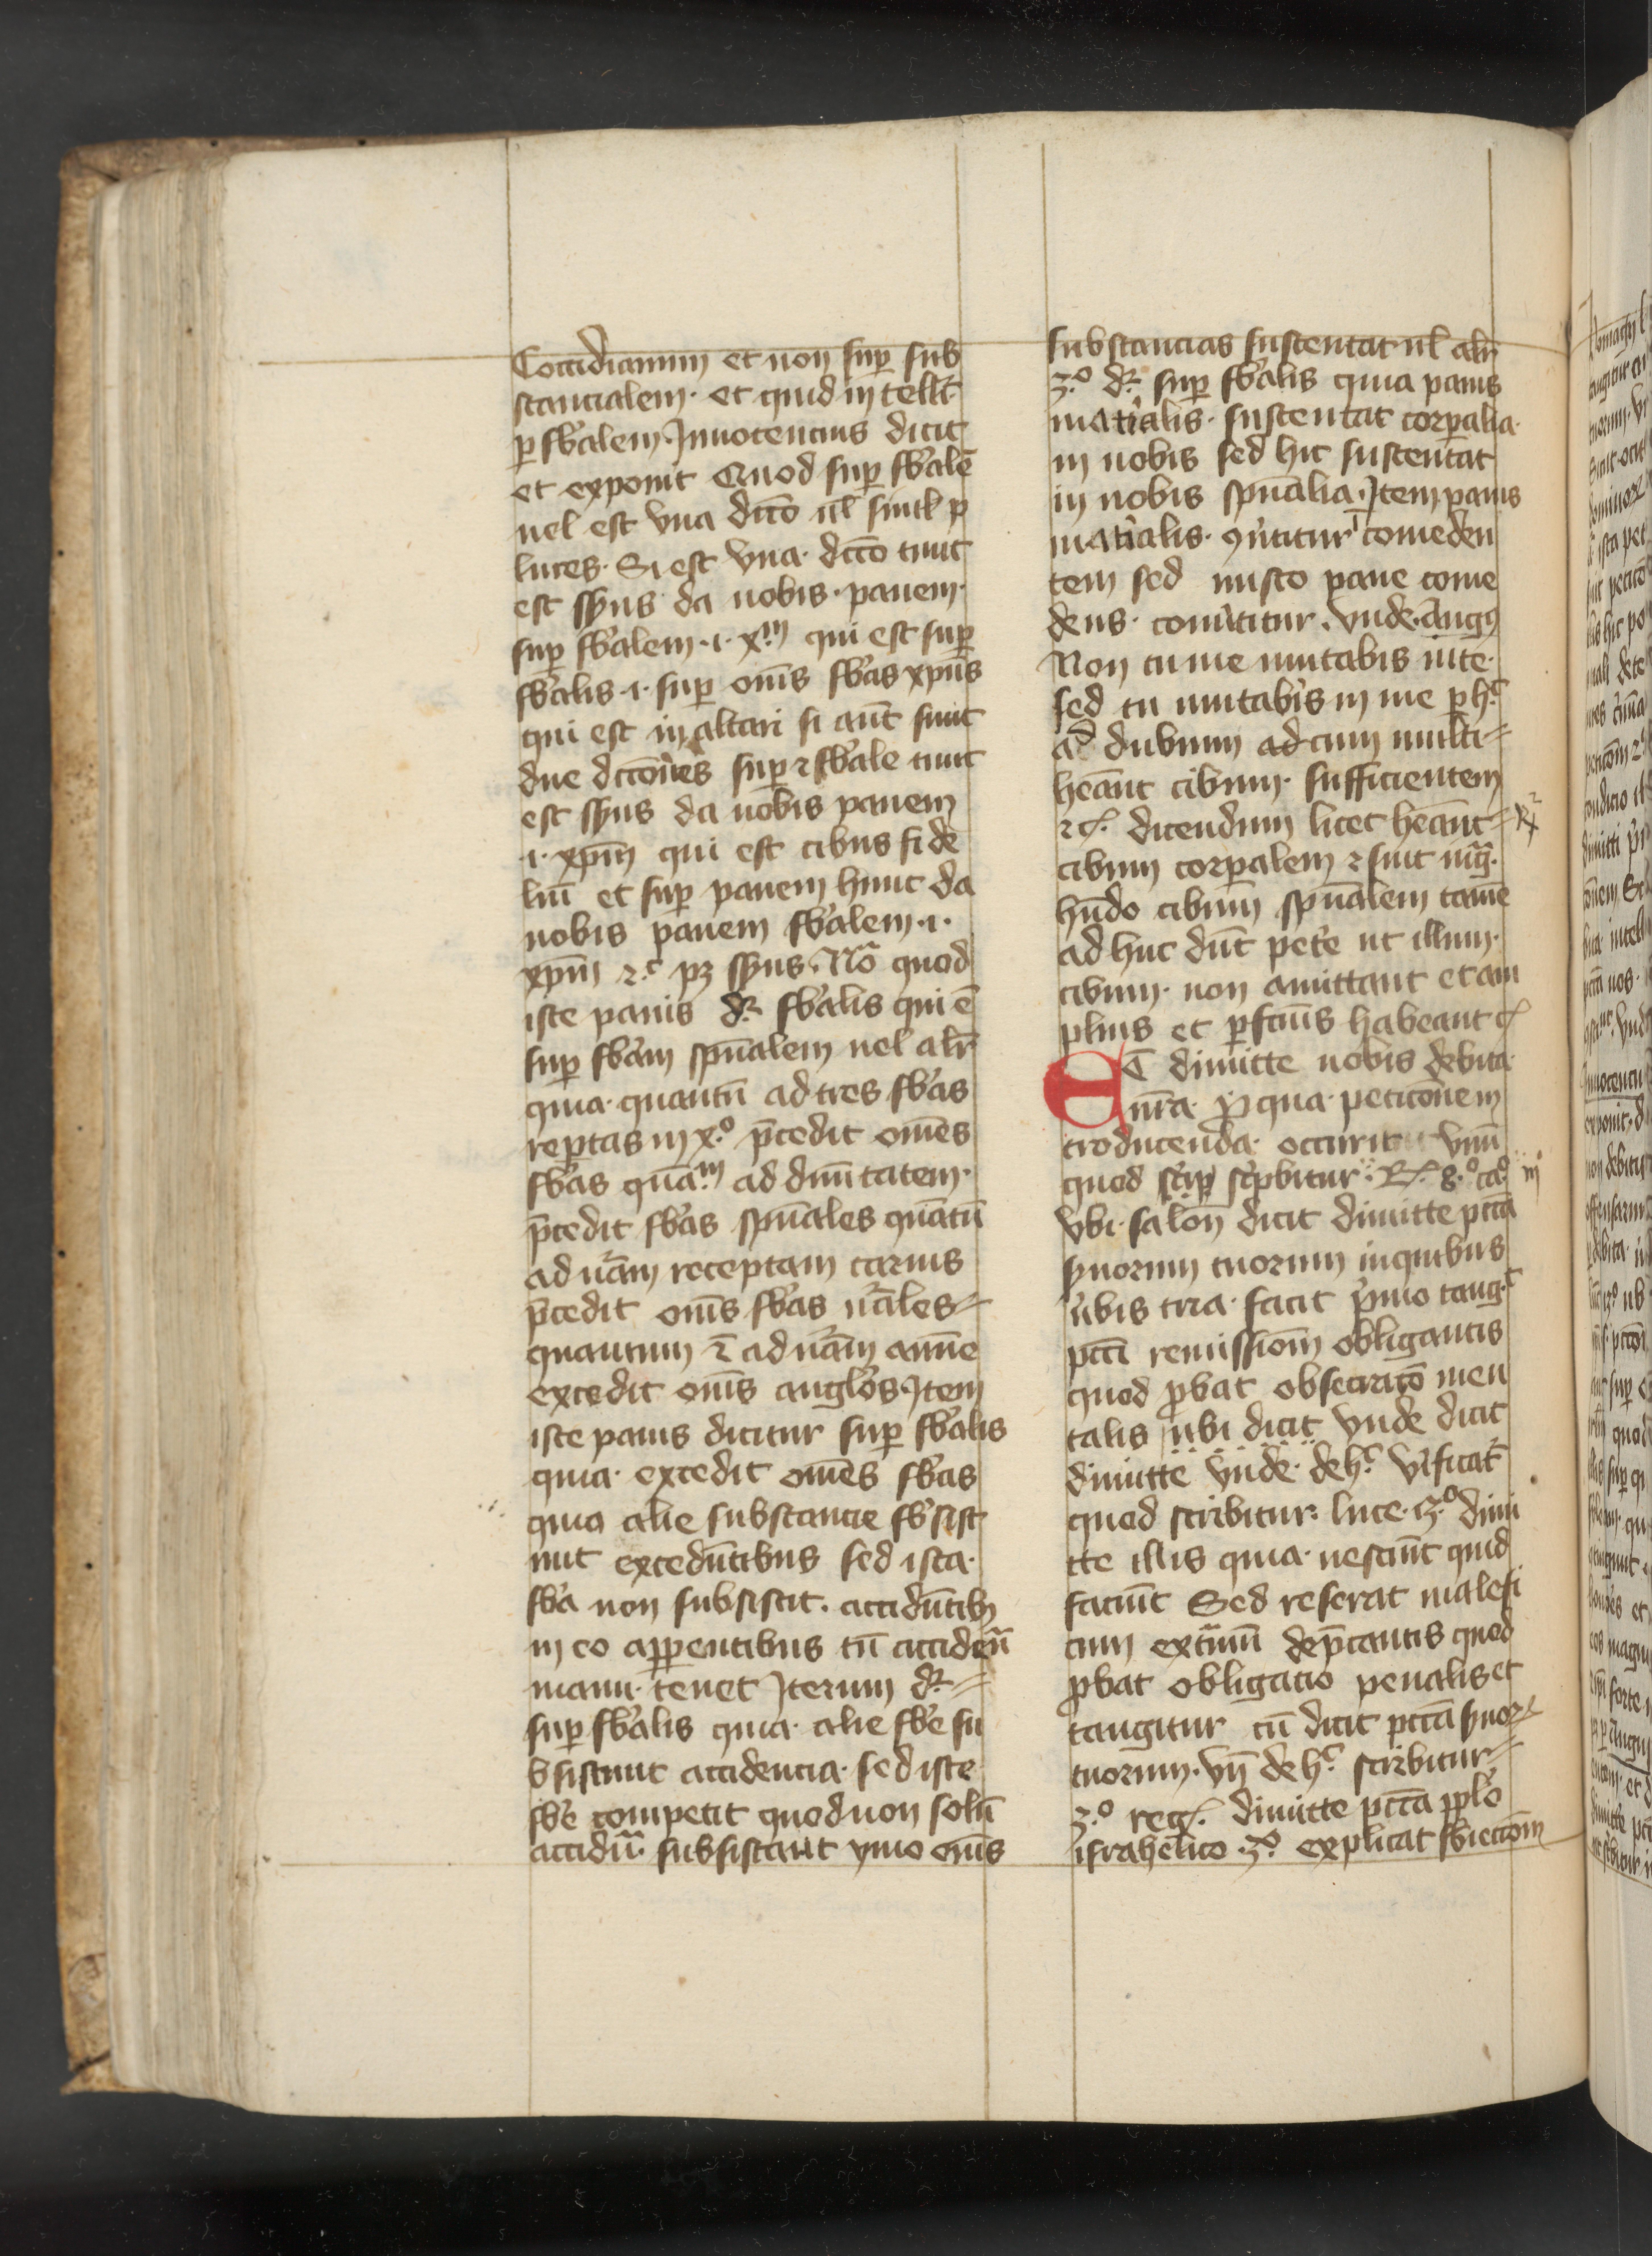 Cottidianum et non sup̱ sub
stancialem· et quid in tellr̄·
ꝑ sb̄alem Innocencius dicit
et exponit Quod sup̱ sb̄alē
uel est vna dicc̄o ul̄ sunt p
lures· Si est vna· dicc̄o tunc
est sn̄us da nobis· panem·
sup̱ sb̄alem ·i· xᵐ qui est sup̱
sb̄alis ·i· sup̱ om̄s sb̄as xpūs
qui est in altari si aūt sunt
due dicc̄ones sup̱ ⁊ sb̄ale tunc
est sn̄us da nobis panem
·i· xp̄m qui est cibus fide
liū et sup̱ panem hunc da
nobis panem sb̄alem ·i·
xp̄m ⁊c̄ pꝫ sn̄us· No᷑ quod
iste panis dꝛ sb̄alis qui ē
sup̱ sb̄am spūalem uel alr̄
quia· quantū ad tres sb̄as
rep̱tas in x·º p̄cedit om̄es
sb̄as quāᵐ ad diuītatem·
p̄cedit sb̄as spūales quātū
ad nām receptam carnis
p̄cedit om̄s sb̄as nāles
quantum ē ad nām anīe
excedit om̄s anglos Item
iste panis dicitur sup̱ sb̄alis
quia· excedit om̄es sb̄as
quia alie substancie sb̄sist
unt excedūtibus sed ista·
sb̄a non subsistit· accidūtib
in eo apparentibus tū accideñ
manu· tenet Iterum dꝛ
sup̱ sb̄alis quia· alie sb̄e su
bsistunt accidencia· sed iste
sb̄e competit quod non solū
accidn̄· subsistant ymo om̄s
substancias sustentat ul̄ alr̄
3·º dꝛ· sup̱ sb̄alis quia panis
mat̄ialis· sustentat corꝑalia·
in nobis sed hic sustentat
in nobis spūalia· Item panis
mat̄ialis· ꝯu̓titur ī comeden
tem sed in isto pane come
dens· conu̓titur· Vnde· Augꝰ
Non tu me mutabis in te·
sed tu mutab̓is in me p̱ hᶜ
ad dubium ad cum multi
hēant cibum· sufficientem
⁊c̄· dicendum licet hēant
cibum corꝑalem ⁊ sint
hn̄do cibum spūalem tamē
ad huc dn̄t pet̓e ut illum·
cibum· non amittant et am
plius et ꝑfc̄ius habeant
Et dimitte nobis debita·
nr̄a· p̱ qua· peticōnem
troducenda· occurit vnū
quod sc̓ip sc̓pbitur· R· 8·º ca·º
vbi· salōn dicit dimitte pc̄ta
s̓uorum tuorum in quibus
u̓bis tria· facit p̓mo tangᶜ
pcc̄i remissiōm obligantis
quod ꝓbat obsecracio men
talis ubi dicit vnde dicit
dimitte vnde· de hᶜ u̓ificat̄
quod scribitur· luce· 23·º dimi
tte illis quia· nesciūt quid
faciūt Sed reserat malefi
cium ext̄mū dep̄cantis quod
ꝓbat obligacio penalis et
tangitur cū dicit pcc̄a s̓uoꝝ
tuorum· Vn̄ de hᶜ scribitur
3·º reg· dimitte pcc̄a ppl̓o
israhelico· 3·º explicat sb̓iectiōm